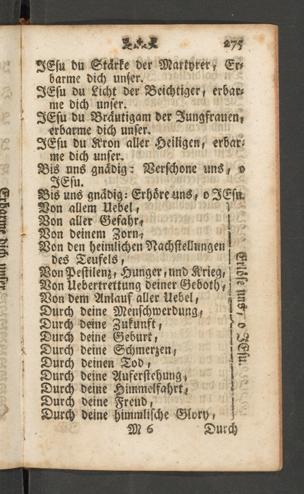 275
JEsu du Stärke der Martyrer, Er-
barme dich unser.
JEsu du Licht der Beichtiger, erbar-
me dich unser.
JEsu du Bräutigam der Jungfrauen,
erbarme dich unser.
JEsu du Kron aller Heiligen, erbar-
me dich unser.
Bis uns gnädig: Verschone uns, o
JEsu.
Bis uns gnädig: Erhöre uns, o JEsu.
Von allem Uebel,
Von aller Gefahr,
Von deinem Zorn,
Von den heimlichen Nachstellungen
des Teufels,
Von Pestilenz, Hunger, und Krieg,
Von Uebertrettung deiner Geboth,
Von dem Anlauf aller Uebel,
Durch deine Menschwerdung,
Durch deine Zukunft,
Durch deine Geburt,
Durch deine Schmerzen,
Durch deinen Tod,
Durch deine Auferstehung,
Durch deine Himmelfahrt,
Durch deine Freud,
Durch deine himmlische Glory,
Erlöse uns, o JEsu.
M 6 Durch
Erbarme dich unser